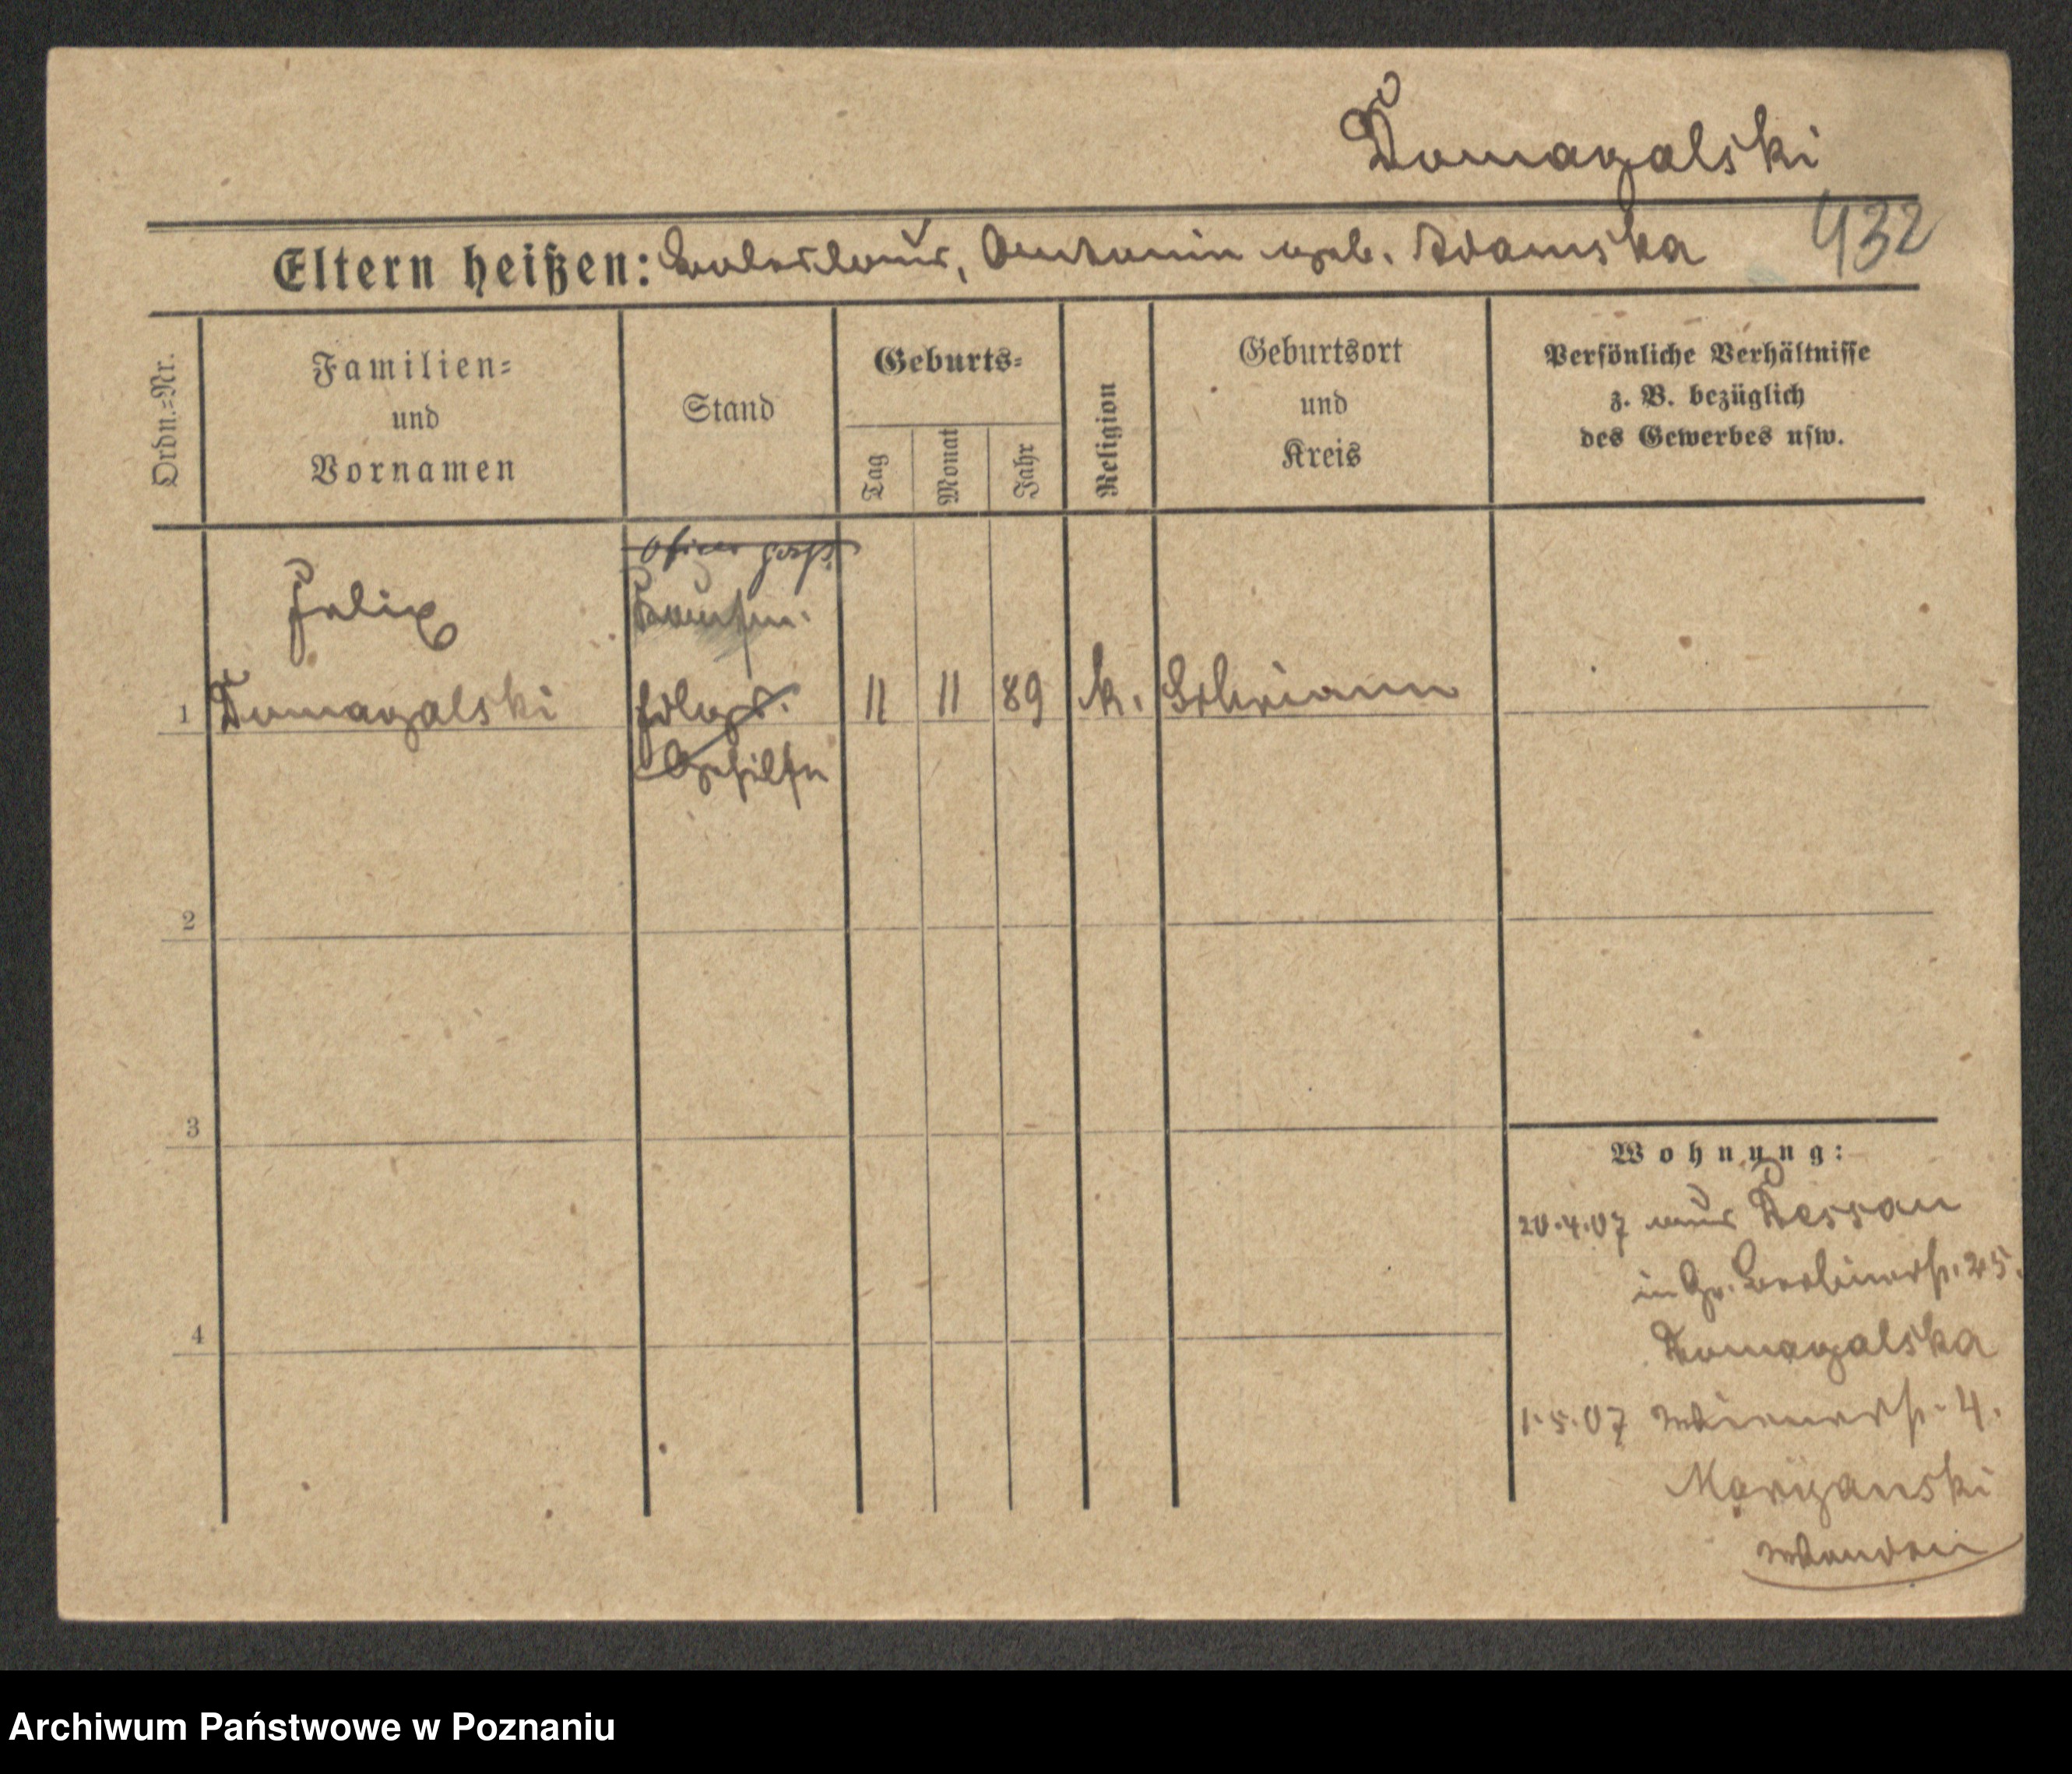 Domagalski
432
Eltern heißen: Boleslaus, Antonin geb. Adamska
Ordn.=Nr.
Familien=
und
Vornamen
Stand
Geburts=
Tag
Monat
Jahr
Religion
Geburtsort
und
Kreis
Persönliche Verhältnisse
z. B. bezüglich
des Gewerbes usw.
Felix
1 Domagalski
Kaufm.
Hdlgs.
Gehilfe
11 11 89 k. Schrimm
2
3
4
Wohnung:
20.4.07 aus Dessau
in Gr. Berlinerstr. 25.
Domagalska
1.5.07 Wienerstr. 4.
Maryanski
Archiwum Państwowe w Poznaniu